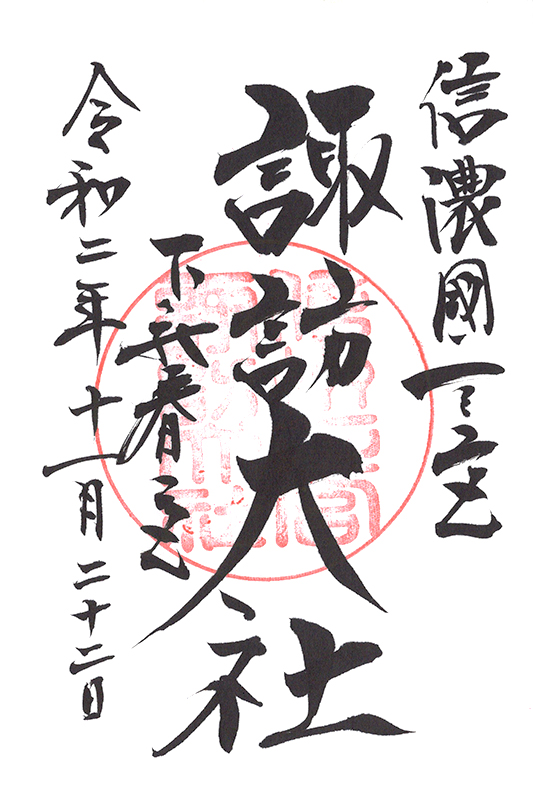 信濃國一之宮
諏訪大社
下社春宮
令和二年十一月二十二日